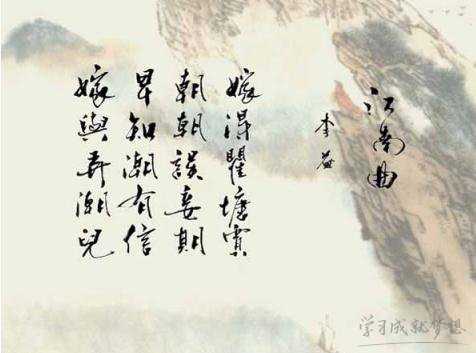 江南曲
李益
嫁得瞿塘賈
朝朝誤妾期
早知潮有信
嫁與弄潮兒
学习成就梦想